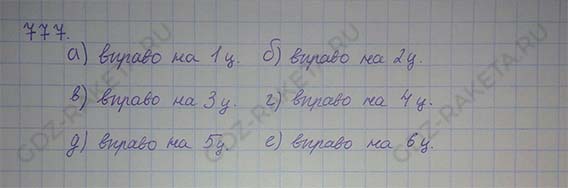 777.
а) вправо на 1 ц. б) вправо на 2 ц.
в) вправо на 3 ц. г) вправо на 4 ц.
д) вправо на 5 ц. е) вправо на 6 ц.
GDZ-RAKETA.RU
GDZ-RAKETA.RU
GDZ-RAKETA.RU